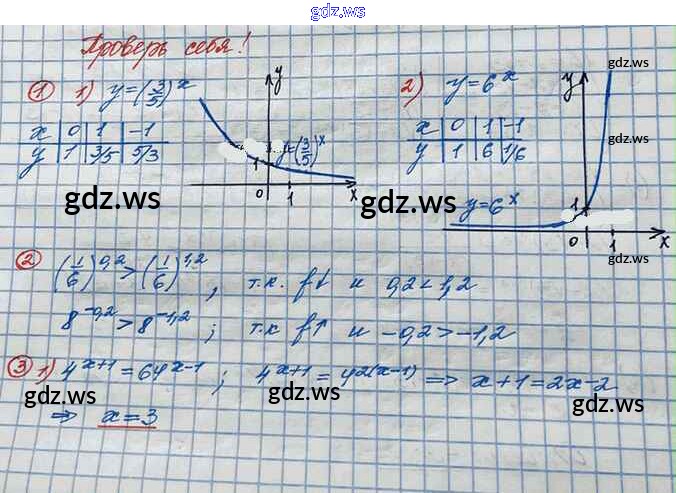 gdz.ws
Проверь себя!
gdz.ws
gdz.ws
1 1) y=(3/5)^x
y
2) y=6^x
y
x 0 1 -1
y 1 3/5 5/3
1 y=(3/5)^x
0 1 x
x 0 1 -1
y 1 6 1/6
gdz.ws
gdz.ws
y=6^x
1
0 1 x
2 (1/6)^0,2 > (1/6)^1,2, т.к. f↓ и 0,2<1,2
gdz.ws
8^-0,2 > 8^-1,2; т.к f↑ и -0,2>-1,2
3 1) 4^x+1 = 64^x-1; 4^x+1 = 4^2(x-1) => x+1=2x-2
gdz.ws
gdz.ws
gdz.ws
=> x=3